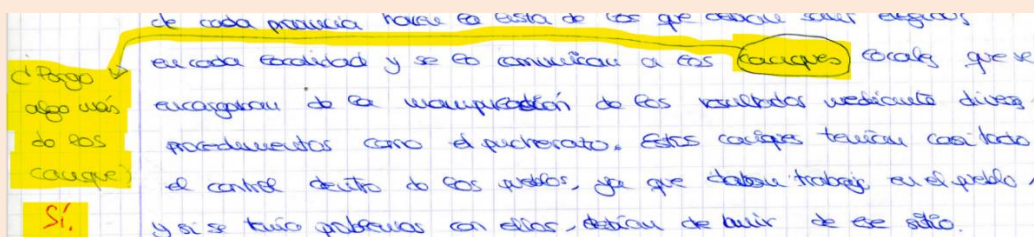 de cada provincia hacía la lista de los que debían salir elegidos
en cada localidad y se lo comunican a los caciques locales, que se
encargaran de la manipulación de los resultados mediante divers
procedimientos como el pucherazo. Estos caciques tenían casi todo
el control dentro de los pueblos, ya que daban trabajo en el pueblo,
y si se tenía problemas con ellos, debían de huir de ese sitio.
¿Pongo
algo más
de los
cacique?
Sí.